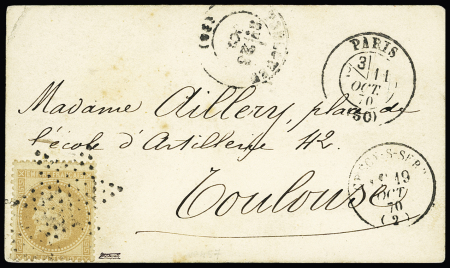 PARIS
3
11
OCT
70
(60)
Madame Aillery, place de
l'école d'Artillerie 42.
Toulouse
19
OCT
70
(2)